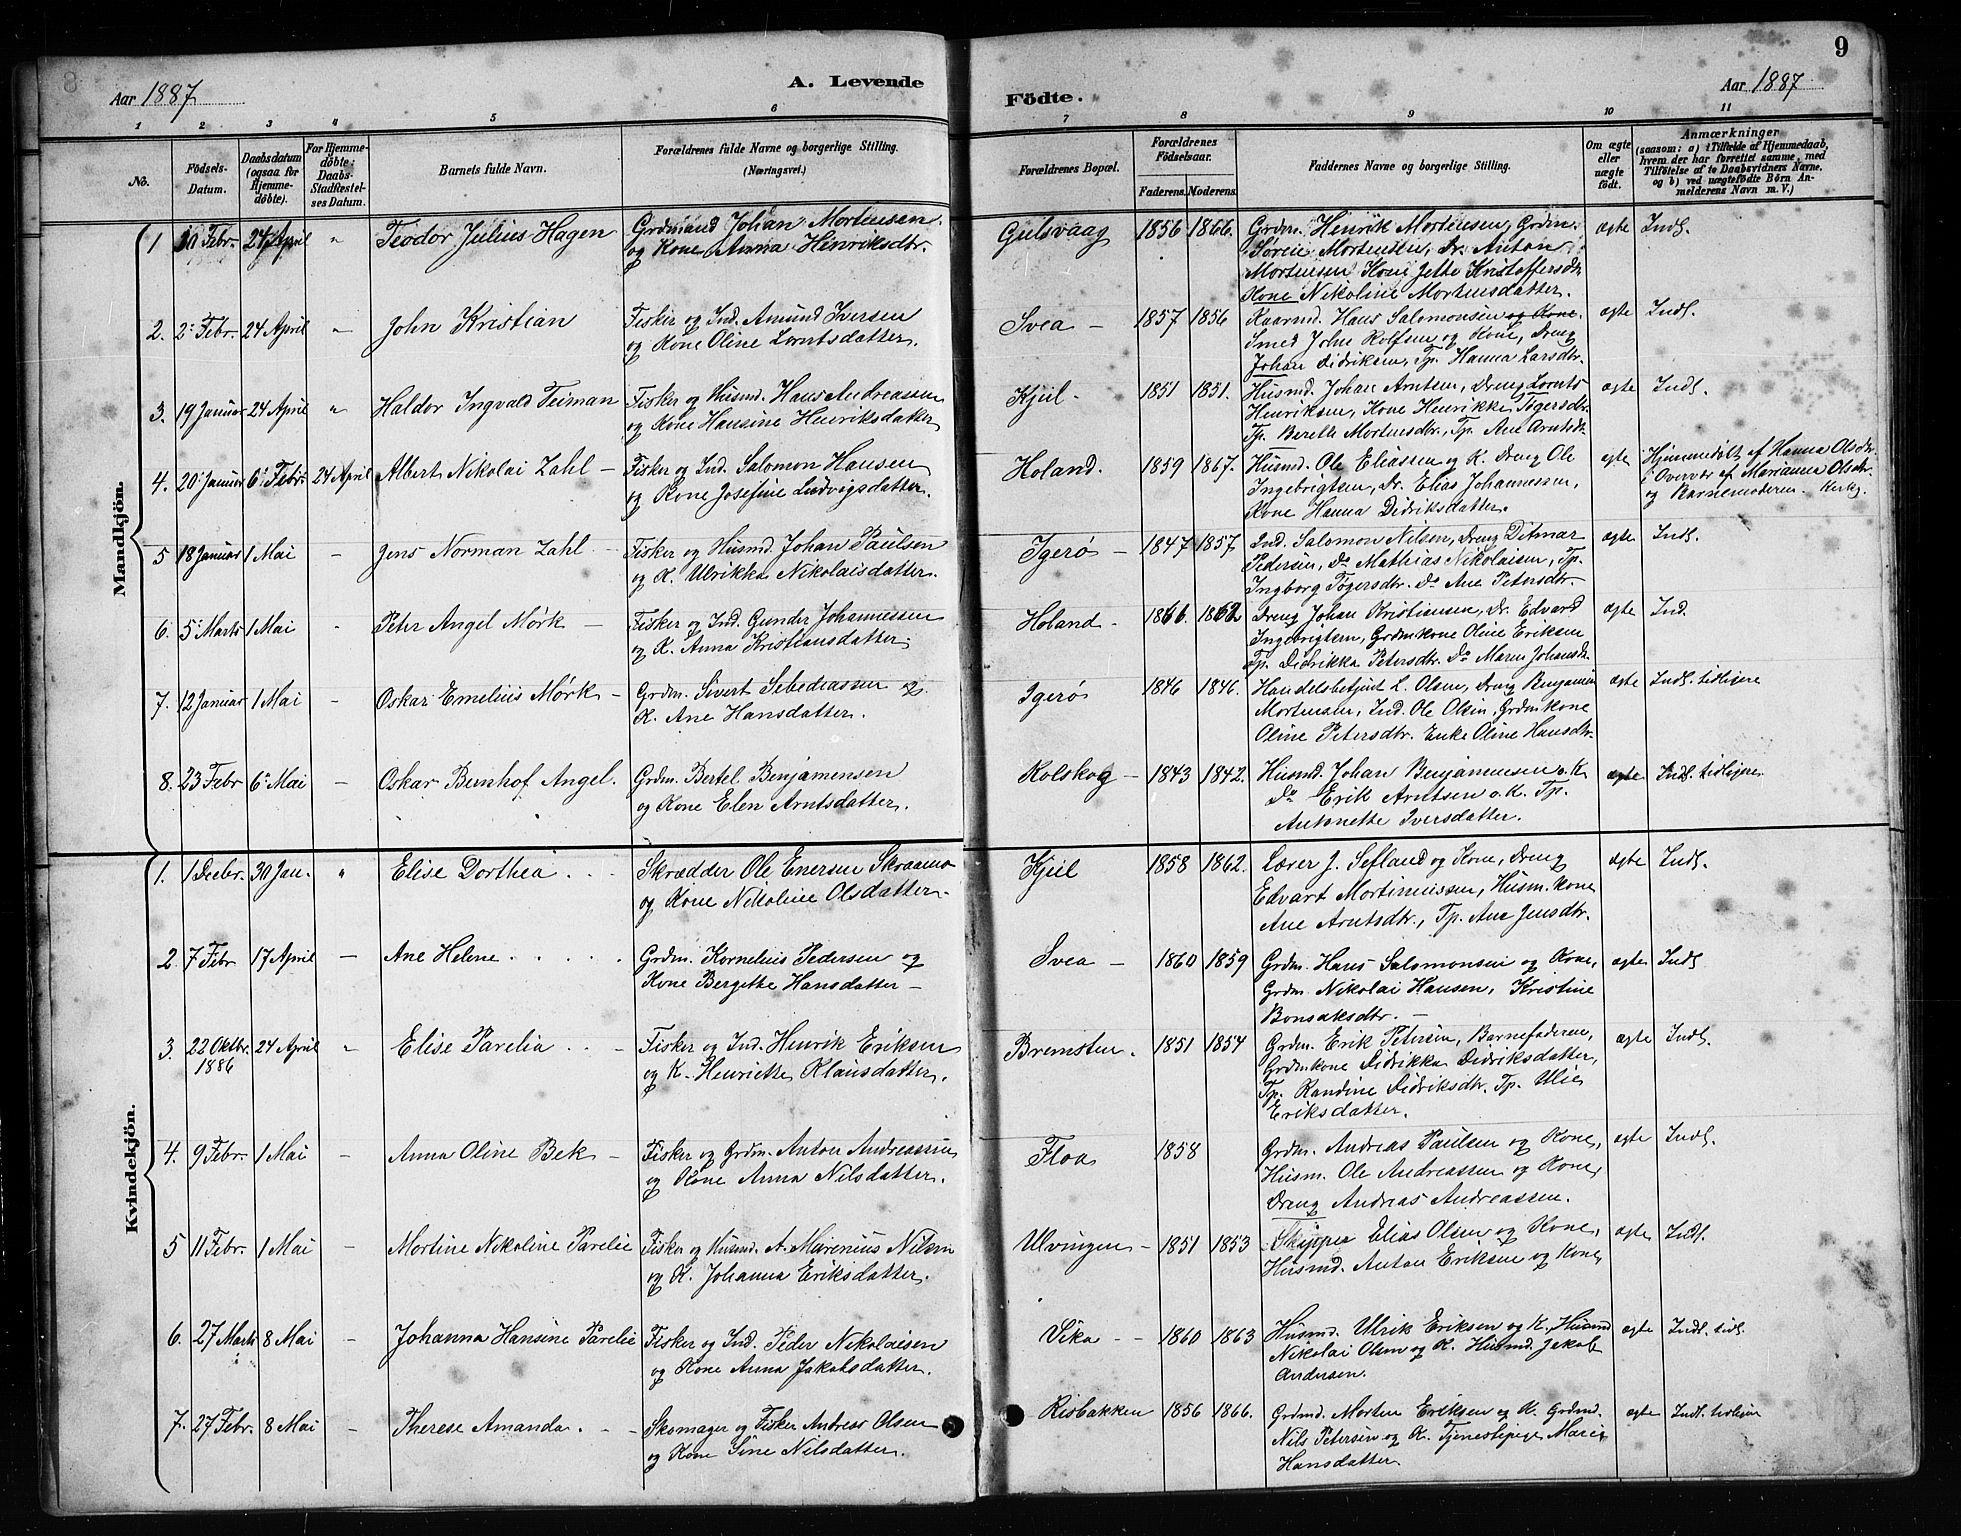 8
Aar 1887
A. Levende
Födte.
Aar 1887
9
1 2 3 4 5 6 7 8 9 10 11
No.
Födsels-
Datum.
Daabsdatum
(ogsaa for
Hjemme-
döbte).
For Hjemme-
döbte:
Daabs-
Stadfæstel-
ses Datum.
Barnets fulde Navn.
Forældrenes fulde Navne og borgerlige Stilling.
(Næringsvei.)
Forældrenes Bopæl.
Forældrenes
Födselsaar.
Faderens. Moderens.
Faddernes Navne og borgerlige Stilling.
Om ægte
eller
uægte
födt.
Anmærkninger
(saasom: a) i Tilfælde af Hjemmedaab,
hvem der har forrettet samme, med
Tilföielse af to Daabsvidners Navne,
og b) ved uægtefödte Börn An-
melderens Navn m. V.)
Mandkjön.
1 10 Febr. 24 April " Teodor Julius Hagen
Grdmand Johan Mortensen
og Kone Anna Henriksdtr.
Gulsvaag 1856 1866.
Grdm. Henrik Mortensen, Grdm.
Søren Mortensen, Dr. Anton
Mortensen Kone Jette Kristoffersdtr
Kone Nikoline Mortensdatter.
ægte Indl.
2. 2: Febr. 24 April " John Kristian
Fisker og Ind. Amund Iversen
og Kone Oline Lorntsdatter.
Svea – 1857 1856
Kaarmd. Hans Salomonsen og Kone.
Smed John Rolfsen og Kone, Dreng
Johan Didriksen, Tp. Hanna Larsdtr.
ægte Indl.
3. 19 Januar 24 April " Haldor Ingvald Teiman
Fisker og Husmd. Hans Andreassen
og Kone Hansine Henriksdatter
Kjul - 1851 1851.
Husmd. Johan Arntsen, Dreng Lornts
Henriksen, Kone Henrikke Tøgersdtr.
Tp. Berelle Mortensdtr., Tp. Ane Arntsdtr
ægte Indl.
4. 20 Januar 6 Febr. 24 April Albert Nikolai Zahl –
Fisker og Ind. Salomon Hansen
og Kone Josefine Ludvigsdatter.
Holand. 1859 1867.
Husmd. Ole Eliassen og K. Dreng Ole
Ingebrigtsen, Dr. Elias Johannessen,
Kone Hanna Didriksdatter.
ægte Hjemmedøbt af Hanna Olsdtr.
i Overvær af Marianna Olsdtr.
og Barnemoderen.
5 18 Januar 1 Mai – Jens Norman Zahl –
Fisker og Husmd. Johan Paulsen
og K. Ulrikka Nikolaisdatter.
Igerø – 1847 1857
Ind. Salomon Nilsen, Dreng Ditmar
Pedersen, Do Mathias Nikolaisen, Tp.
Ingborg Tøgersdtr. Do Ane Petersdtr.
ægte Indl.
6. 5: Marts 1 Mai - Peter Angel Mørk –
Fisker og Ind. Gunder Johannessen
og K. Anna Kristiansdatter.
Holand - 1866. 1862
Dreng Johan Kristiansen, Dr. Edvard
Ingebrigtsen, Grdmkone Oline Eriksen
Tp. Didrikka Petersdtr. Do Maren Johansdtr.
ægte Ind.
7. 12 Januar 1 Mai - Oskar Emelius Mørk –
Grdm. Sivert Sebediassen og
K. Ane Hansdatter.
Igerø 1846 1846.
Handelsbetjent L. Olsen, Dreng Benjamin
Mortensen, Ind. Ole Olsen, Grdmkone
Oline Petersdtr. Enke Oline Hansdtr.
ægte Indl. tidligere
8. 23 Febr 6 Mai – Oskar Bernhof Angel.
Grdm. Bertel Benjamensen
og Kone Elen Arntsdatter.
Kolskog – 1843 1842.
Husmd. Johan Benjaminsen o. K
Do Erik Arntsen o. K. Tp.
Antonette Iversdatter.
ægte Indl. tidligere
Kvindekjön.
1. 1 Decbr. 30 Jan. " Elise Dorthea . . .
Skrædder Ole Enersen Skraamo
og Kone Nikoline Olsdatter.
Kjul 1858 1862.
Lærer J. Sefland og Kone, Dreng
Edvart Mortinussen, Husm. kone
Ane Arntsdtr., Tp. Ane Jensdtr.
ægte Indl.
2. 7 Febr 17 April – Ane Helene . . . . .
Grdm. Kornelius Pedersen og
Kone Bergitte Hansdatter –
Svea – 1860 1859
Grdm. Hans Salomonsen og Kone,
Grdm. Nikolai Hansen, Kristine
Bonsaksdtr. –
ægte Indl
3. 22 Oktbr. 24 April " Elise Parelia . . –
1886
Fisker og Ind. Henrik Eriksen
og K. Henriette Klausdatter.
Bremsten. 1851 1854
Grdm. Erik Petersen, Barnefaderen,
Grdmkone Didrikka Didriksdatter,
Tp. Randine Didriksdtr. Tp. Ulie
Eriksdatter.
ægte Indl.
4. 9 Febr. 1 Mai – Anna Oline Bek –
Fisker og Grdm. Anton Andreassen
og Kone Anna Nilsdatter.
Floa 1858
Grdm. Andreas Paulsen og Kone,
Husm. Ole Andreassen og Kone,
Dreng Andreas Andreassen.
ægte Indl.
5 11 Febr. 1 Mai – Mortine Nikoline Parelie
Fisker og Husmd. A. Marenius Nilsen
og K. Johanna Eriksdatter.
Ulvingen – 1851 1853
Skipper Elias Olsen og Kone,
Husmd. Anton Eriksen og Kone,
ægte Indl.
6. 27 Marts 8 Mai – Johanna Hansine Parelie
Fisker og Ind. Peder Nikolaisen
og Kone Anna Jakobsdatter.
Vika – 1860 1863
Husmd. Ulrik Eriksen og K., Husmd
Nikolai Olsen og K. Husmd. Jakob
Andersen.
ægte Indl. tidl.
7. 27 Febr. 8 Mai – Therese Amanda. . –
Skomager og Fisker Andreas Olsen
og Kone Sine Nilsdatter.
Risbakken 1856 1866.
Grdmd. Morten Eriksen og K. Grdmd.
Nils Petersen og K. Tjenestepige Marie
Hansdatter.
ægte Indl. tidligere